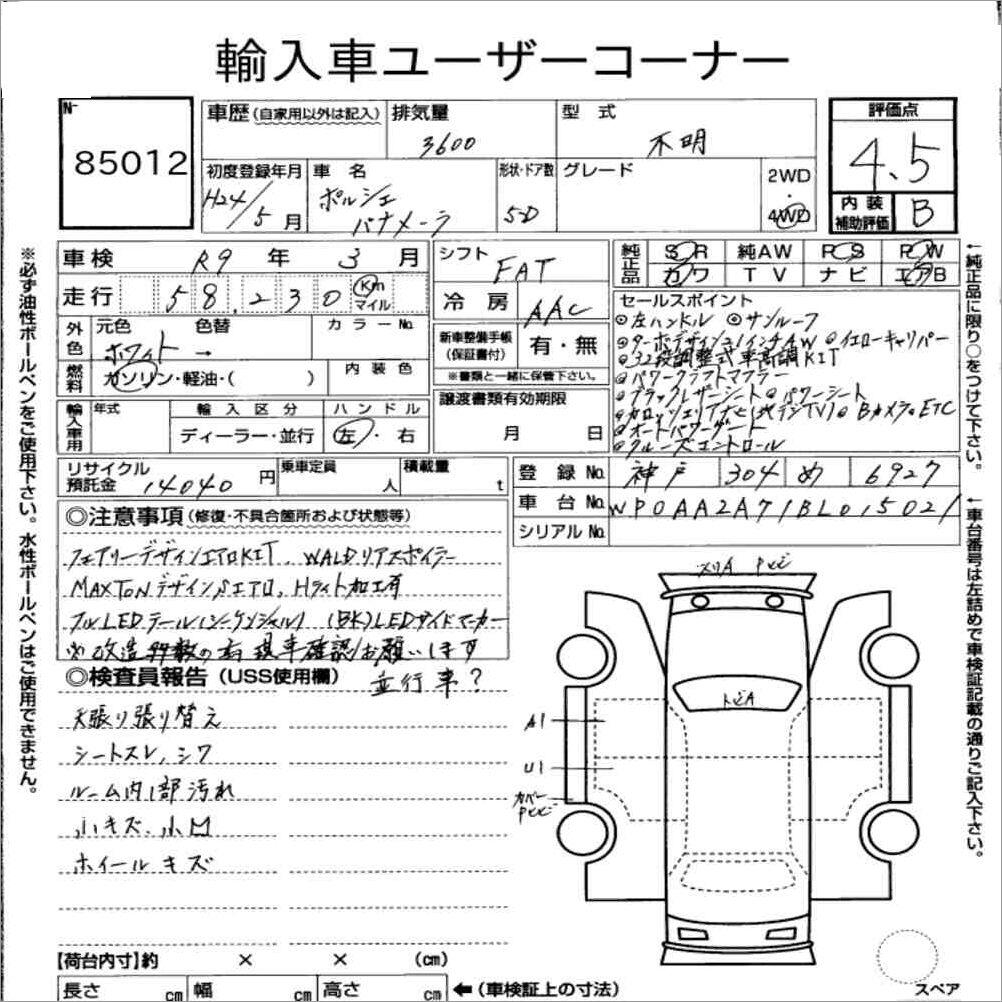 輸入車ユーザーコーナー
No.
85012
車歴 (自家用以外は記入)
排気量
3600
型式
不明
評価点
4.5
初度登録年月
H24/5月
車名
ポルシェ
パナメーラ
形状・ドア数
5D
グレード
2WD
・
4WD
内装
補助評価
B
車検 R9年 3月
走行 58,230 Km
マイル
外色
元色 色替
カラーNo.
ホワイト →
燃料
ガソリン・軽油・( )
内装色
輸入車用
年式
輸入区分
ディーラー・並行
ハンドル
左・右
シフト
FAT
冷房
AAC
新車整備手帳
(保証書付)
有・無
※書類と一緒に保管下さい。
譲渡書類有効期限
月 日
純正品
SR 純AW PS PW
カワ TV ナビ エアB
セールスポイント
◎左ハンドル ◎サンルーフ
◎ターボデザイン21インチAW ◎イエローキャリパー
◎32段調整式車高調KIT
◎パワークラフトマフラー
◎ブラックレザーシート ◎パワーシート
◎カロッツェリアナビ(地デジTV) ◎Bカメラ ◎ETC
◎オートパワーゲート
◎クルーズコントロール
リサイクル
預託金
14040円
乗車定員
人
積載量
t
登録No. 神戸 304 め 6927
車台No. WP0AA2A71BL015021
シリアルNo.
◎注意事項 (修復・不具合箇所および状態等)
フェアリーデザインエアロKIT、WALDリアスポイラー
MAXTONデザインSエアロ、Hライト加工有
フルLEDテール(シーケンシャル) (BK)LEDサイドマーカー
※改造多数の為現車確認お願いします
◎検査員報告 (USS使用欄)
並行車?
天張り張り替え
シートスレ、シワ
ルーム内1部汚れ
小キズ、小凹
ホイールキズ
スリA
トビA
A1
U1
カバー
【荷台内寸】約 × × (cm)
長さ cm 幅 cm 高さ cm ←(車検証上の寸法)
スペア
※必ず油性ボールペンをご使用下さい。水性ボールペンはご使用できません。
←純正品に限り○をつけて下さい。
←車台番号は左詰めで車検証記載の通りご記入下さい。